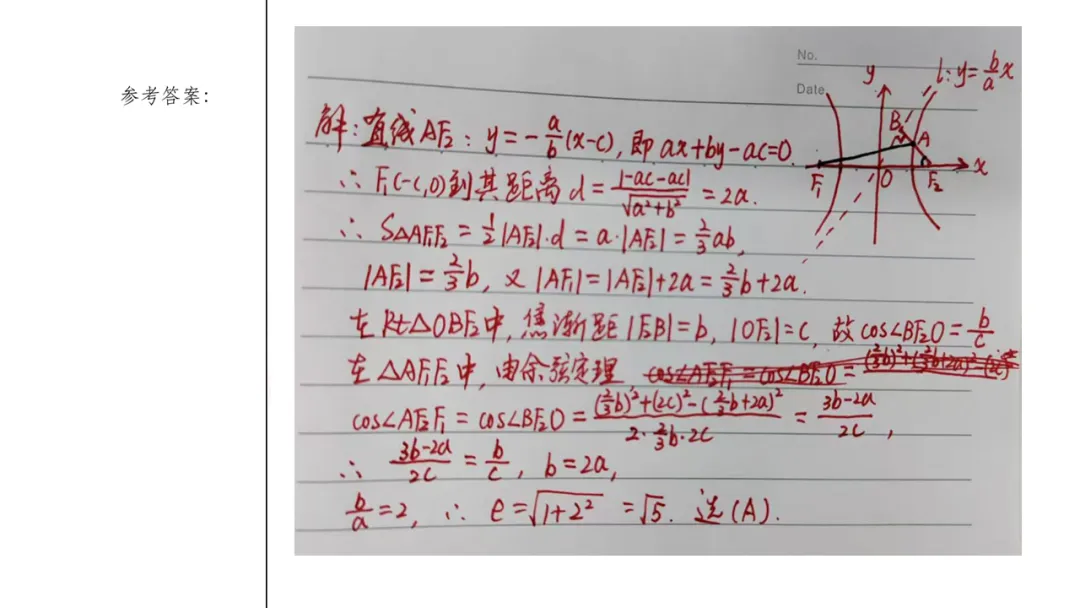 参考答案：
No.
Date
y
l: y=b/a x
B
A
F₁
O
F₂
x
解：直线AF₂：y=-a/b(x-c)，即ax+by-ac=0.
∴ F₁(-c,0)到其距离d=|-ac-ac|/√(a²+b²)=2a.
∴ S△AF₁F₂=1/2|AF₂|·d=a·|AF₂|=2/3ab,
|AF₂|=2/3b，又|AF₁|=|AF₂|+2a=2/3b+2a.
在Rt△OBF₂中，焦渐距|F₂B|=b，|OF₂|=c，故cos∠BF₂O=b/c
在△AF₁F₂中，由余弦定理
cos∠AF₂F₁=cos∠BF₂O=((2/3b)²+(2c)²-(2/3b+2a)²)/(2·2/3b·2c)=(3b-2a)/2c,
∴ (3b-2a)/2c=b/c，b=2a,
b/a=2，∴ e=√(1+2²)=√5. 选(A).